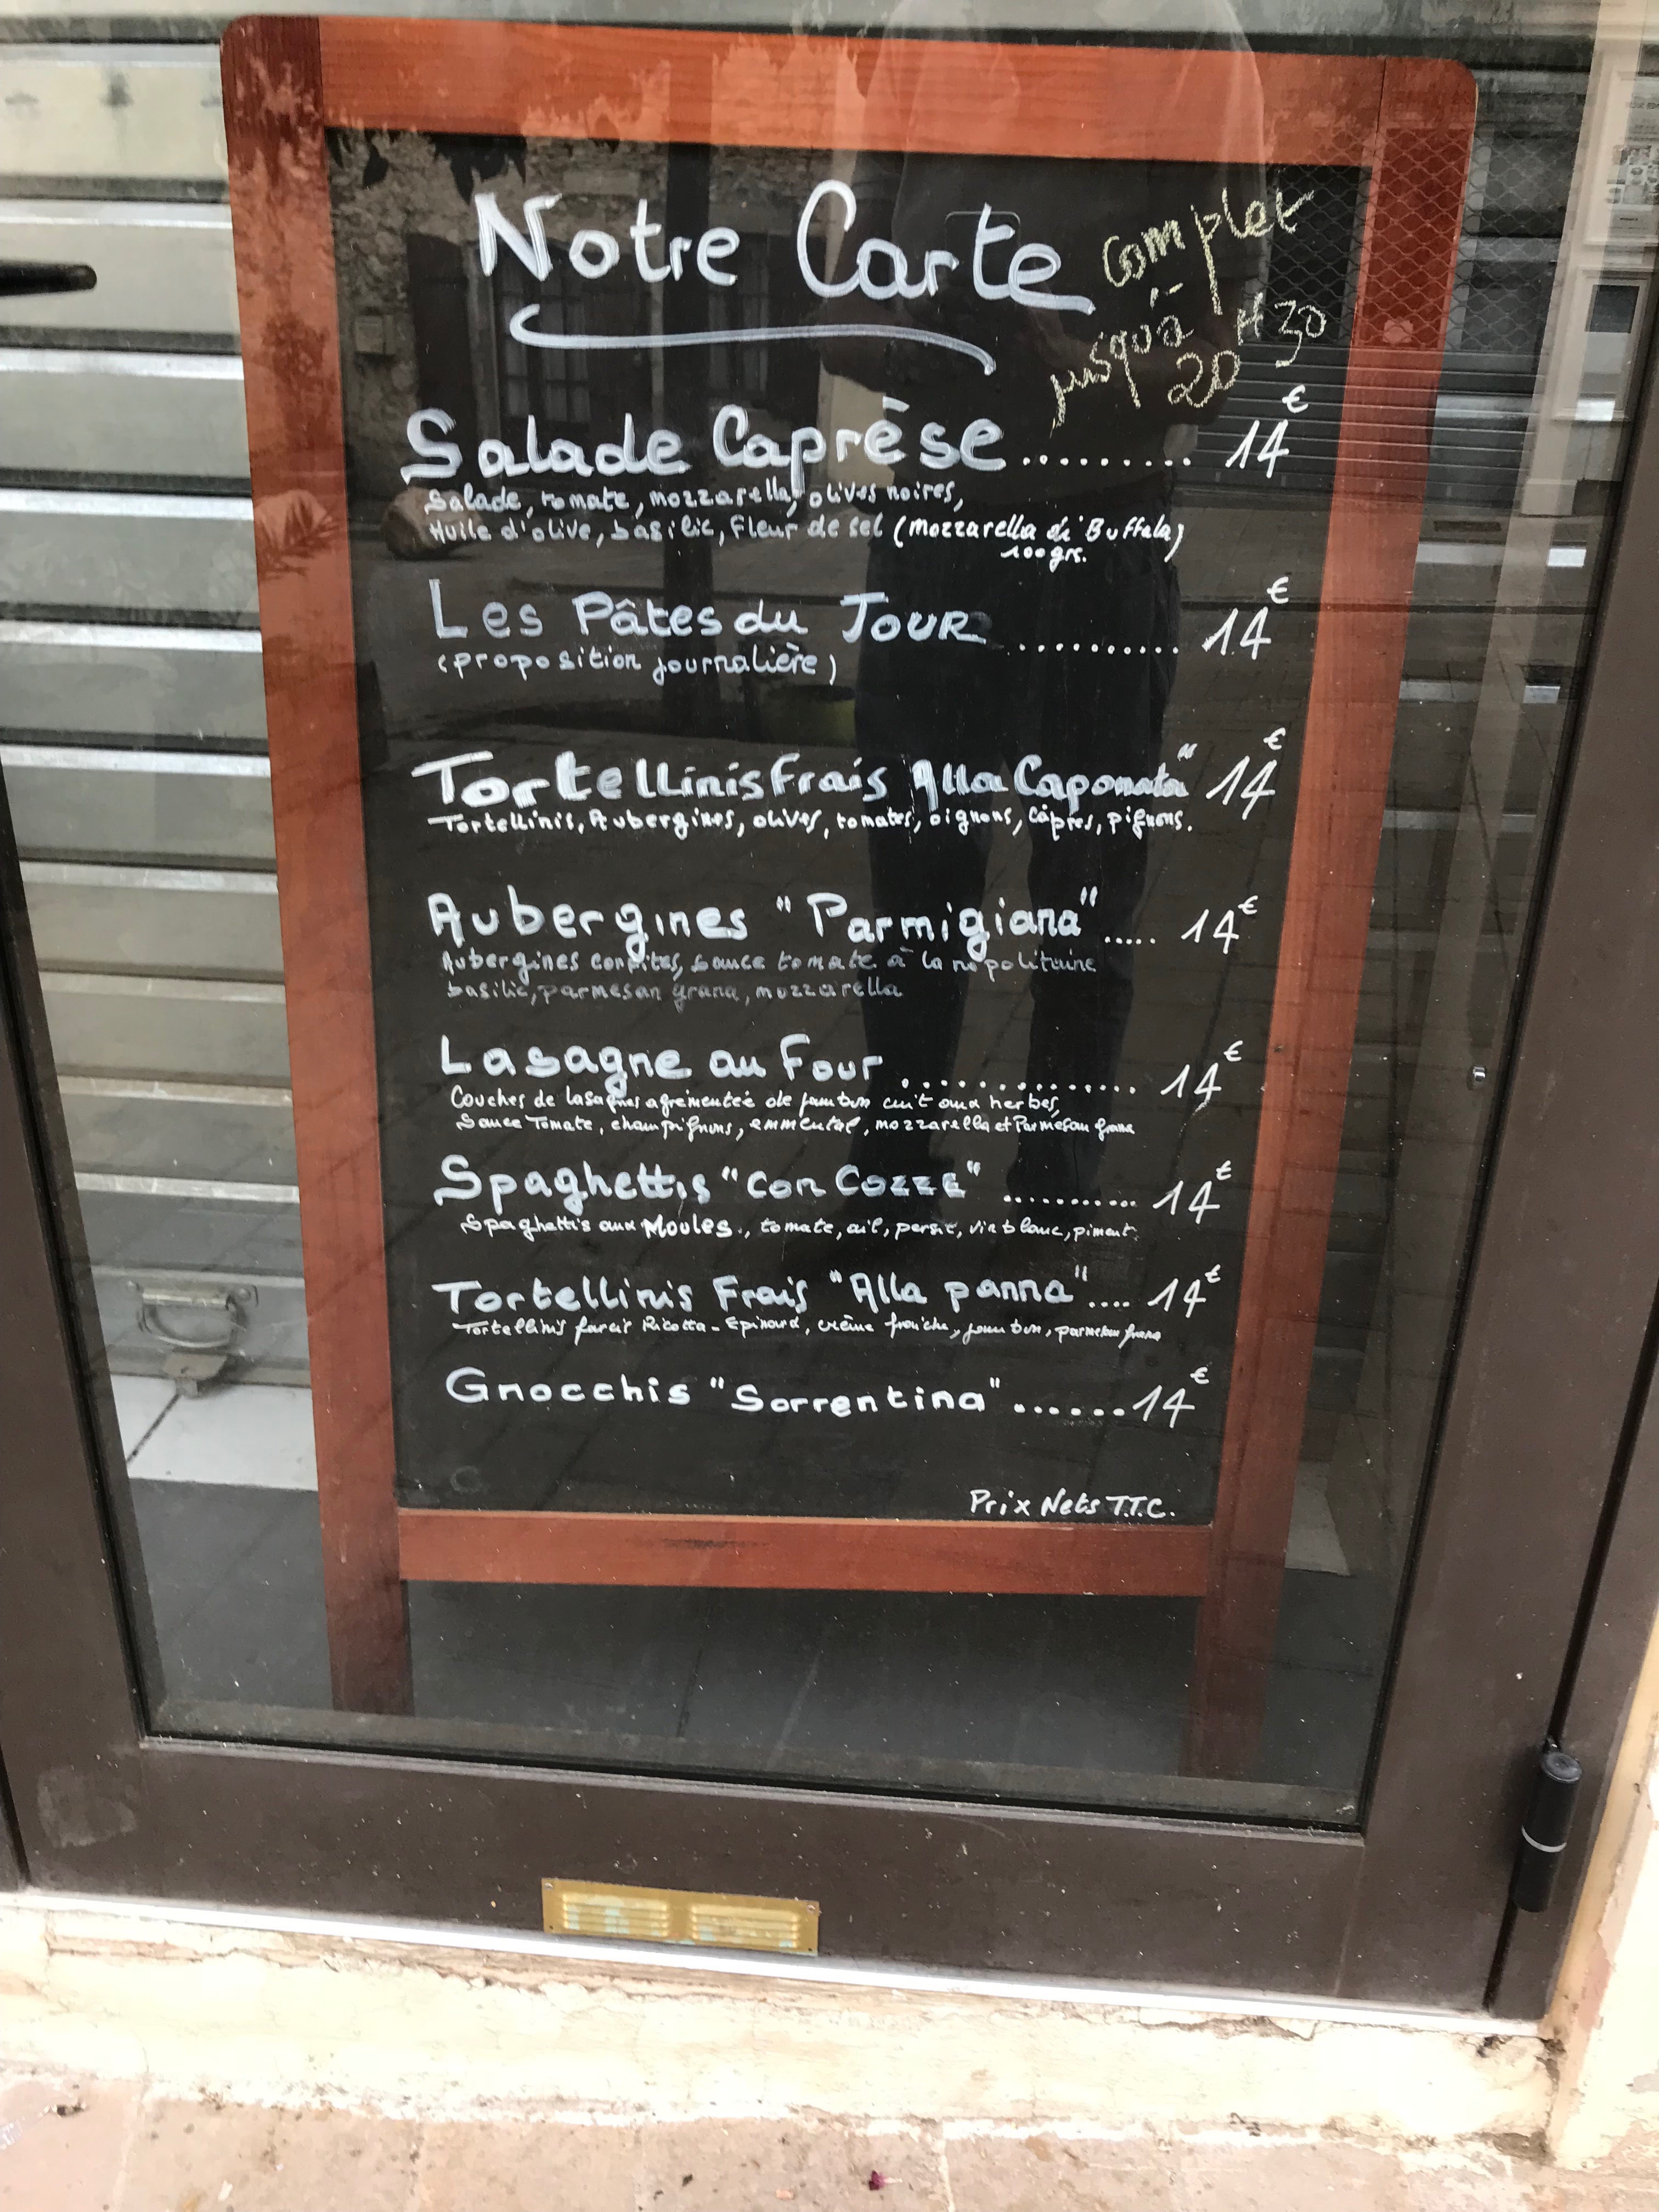 Notre Carte
complet
jusqu'à
20 H 30
Salade Caprèse ......... 14€
Salade, tomate, mozzarella, olives noires,
Huile d'olive, basilic, Fleur de sel (Mozzarella di Buffala)
100 grs.
Les Pâtes du JOUR .......... 14€
(proposition journalière)
Tortellinis frais "Alla Caponata" 14€
Tortellinis, Aubergines, olives, tomates, oignons, câpres, pignons.
Aubergines "Parmigiana" ..... 14€
Aubergines confites, sauce tomate à la napolitaine
basilic, parmesan grana, mozzarella
Lasagne au Four .............. 14€
Couches de lasagnes agrementée de jambon cuit aux herbes,
Sauce Tomate, champignons, emmental, mozzarella et Parmesan grana
Spaghettis "con Cozze" ........... 14€
Spaghettis aux Moules., tomate, ail, persil, vin blanc, piment.
Tortellinis Frais "Alla panna" .... 14€
Tortellinis farcis Ricotta-Epinard, crème fraîche, jambon, parmesan grana
Gnocchis "Sorrentina" ...... 14€
Prix Nets T.T.C.